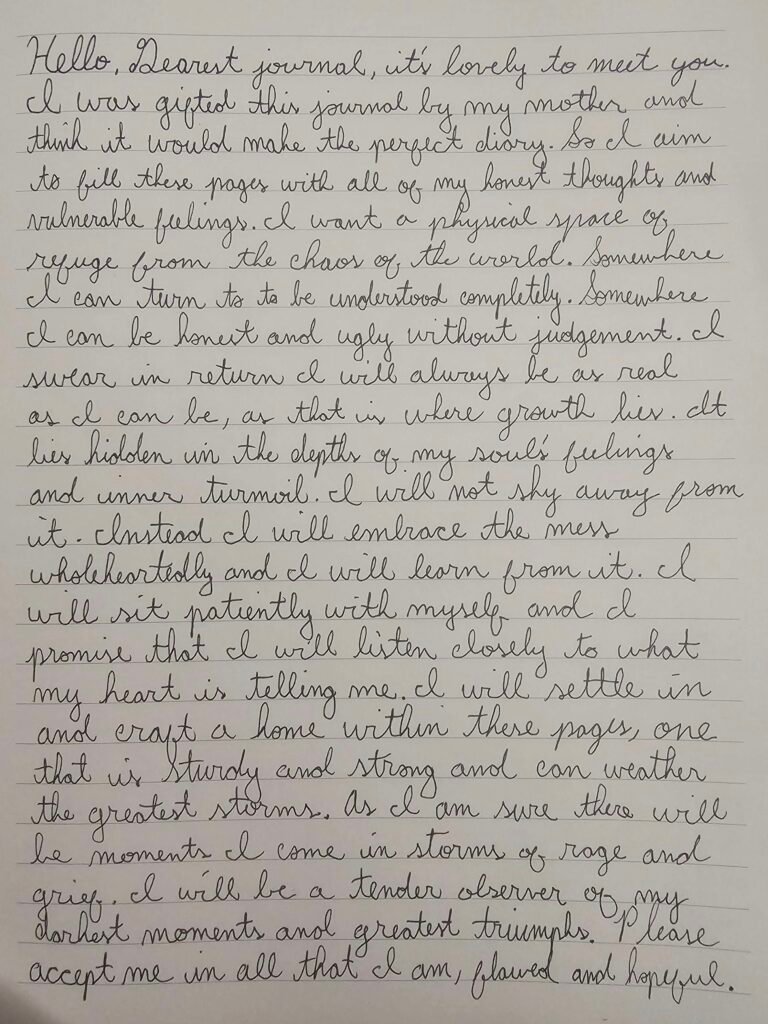 Hello, Dearest journal, it's lovely to meet you.
I was gifted this journal by my mother and
think it would make the perfect diary. So I aim
to fill these pages with all of my honest thoughts and
vulnerable feelings. I want a physical space of
refuge from the chaos of the world. Somewhere
I can turn to to be understood completely. Somewhere
I can be honest and ugly without judgement. I
swear in return I will always be as real
as I can be, as that is where growth lies. It
lies hidden in the depths of my soul's feelings
and inner turmoil. I will not shy away from
it. Instead I will embrace the mess
wholeheartedly and I will learn from it. I
will sit patiently with myself and I
promise that I will listen closely to what
my heart is telling me. I will settle in
and craft a home within these pages, one
that is sturdy and strong and can weather
the greatest storms. As I am sure there will
be moments I come in storms of rage and
grief. I will be a tender observer of my
darkest moments and greatest triumphs. Please
accept me in all that I am, flawed and hopeful.